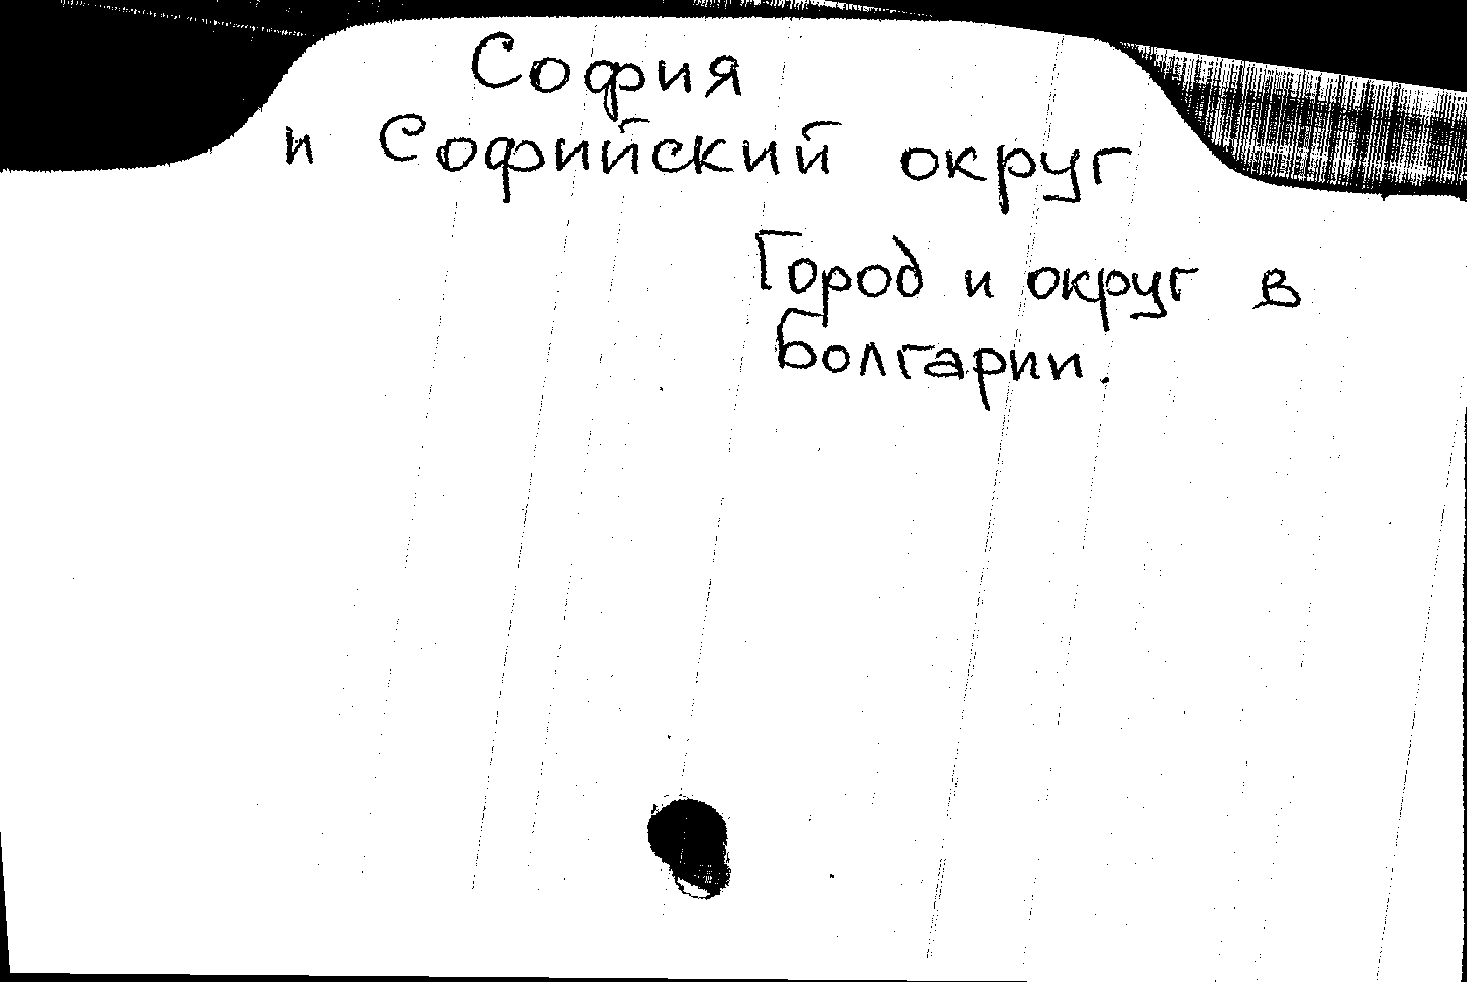 София
и Софийский округ
Город и округ в
Болгарии.